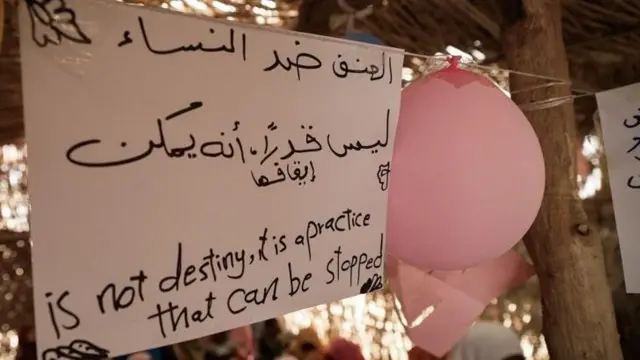 العنف ضد النساء
ليس قدرًا، أنه يمكن
إيقافها
is not destiny, it is a practice
that can be stopped